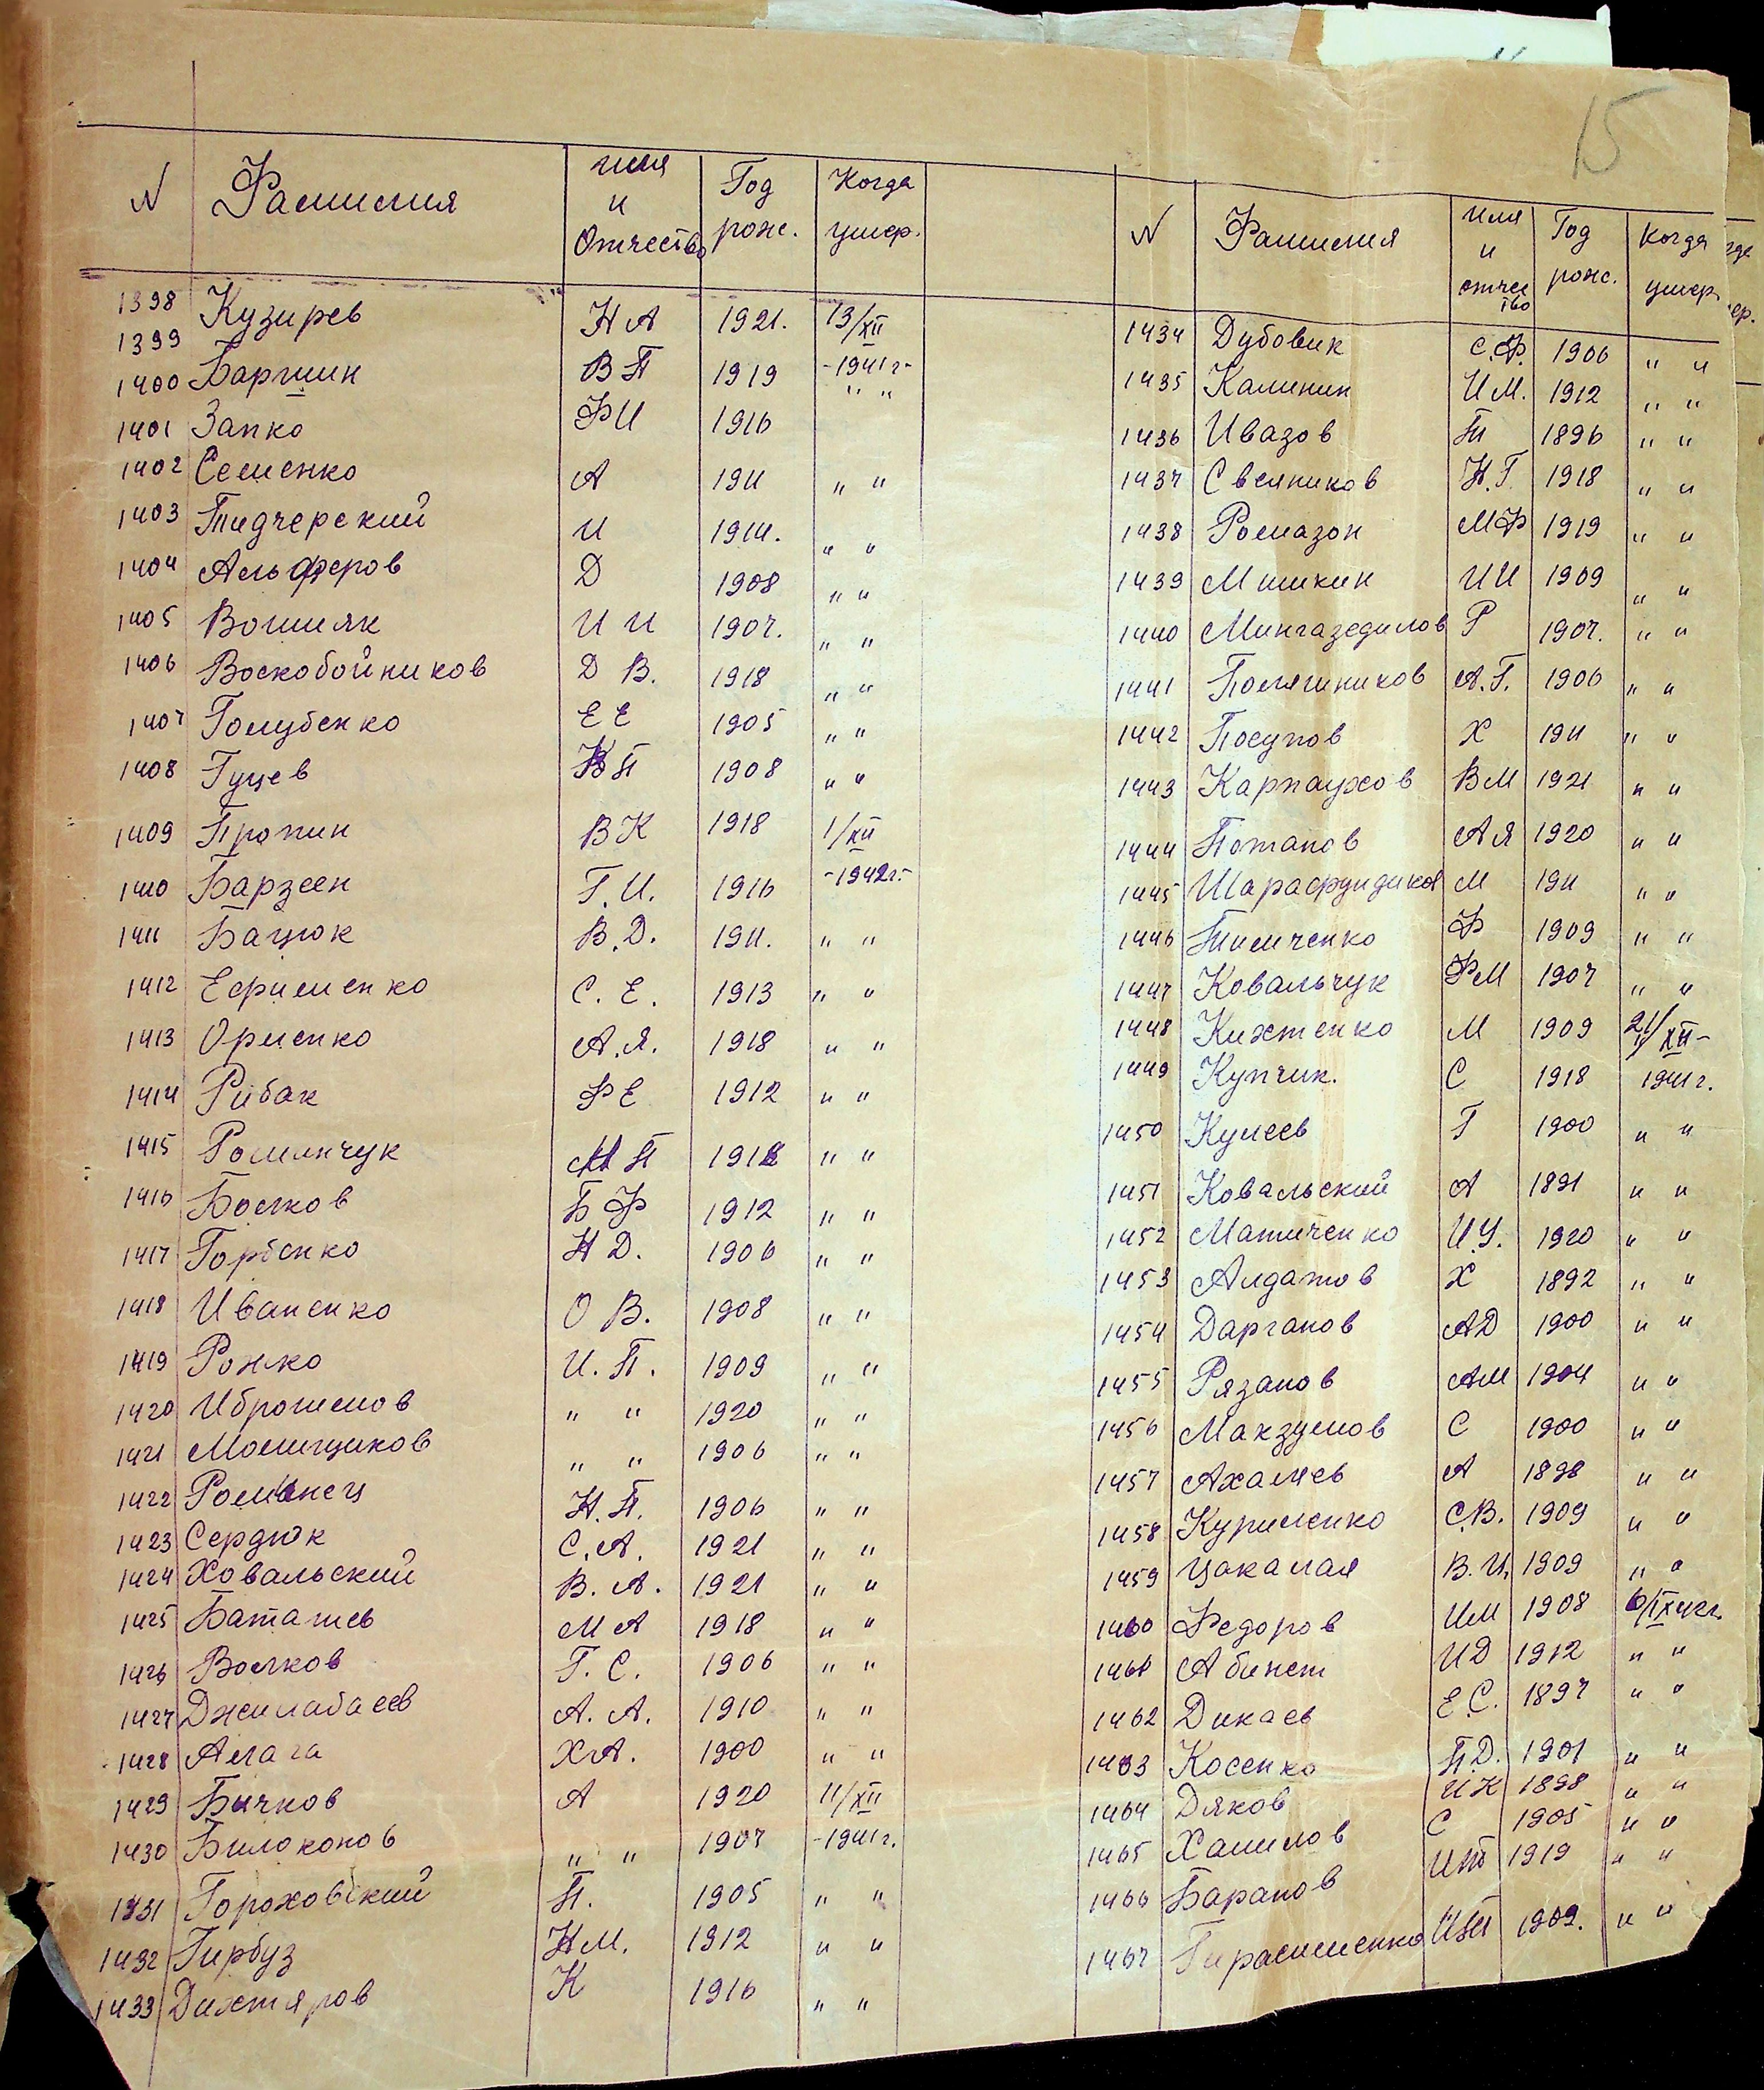 15
N Фамилия имя и Отчество Год рож. Когда умер.
1398 Кузирев Н А 1921. 13/XII
1399
1400 Баршин В П 1919 -1941г-
1401 Запко Ф И 1916 " "
1402 Семенко А 1911 " "
1403 Тидчерский И 1914. " "
1404 Альферов Д 1908 " "
1405 Вошияк И И 1907. " "
1406 Воскобойников Д В. 1918 " "
1407 Голубенко Е Е 1905 " "
1408 Гуцев В П 1908 " "
1409 Пропин В К 1918 1/XII
1410 Барзеен Г. И. 1916 -1942г.-
1411 Бацюк В. Д. 1911. " "
1412 Ефрименко С. Е. 1913 " "
1413 Орленко А. Я. 1918 " "
1414 Рибак Ф Е 1912 " "
1415 Роминчук М П 1918 " "
1416 Волков Б Ф 1912 " "
1417 Горбенко Н Д. 1906 " "
1418 Иваненко О В. 1908 " "
1419 Рожко И. П. 1909 " "
1420 Иброшемов " " 1920 " "
1421 Молищиков " " 1906 " "
1422 Романец Н. П. 1906 " "
1423 Сердюк С. А. 1921 " "
1424 Ховальский В. А. 1921 " "
1425 Баташев М А 1918 " "
1426 Волков Г. С. 1906 " "
1427 Джилабаев А. А. 1910 " "
1428 Алага Х А. 1900 " "
1429 Бичков А 1920 11/XII
1430 Билоконов " " 1907 -1941г.
1431 Гороховский П. 1905 " "
1432 Гирбуз Н М. 1912 " "
1433 Дихтяров К 1916 " "
N Фамилия имя и отчество Год рож. Когда умер.
1434 Дубовик С. Ф. 1906 " "
1435 Калинин И М. 1912 " "
1436 Ивазов Т 1896 " "
1437 Свеяников Н. Г. 1918 " "
1438 Ромазон М Ф 1919 " "
1439 Мишкин И И 1909 " "
1440 Мингазедилов Р 1907. " "
1441 Полягиников А. Г. 1906 " "
1442 Посупов Х 1911 " "
1443 Карпаухов В М 1921 " "
1444 Потапов А Я 1920 " "
1445 Шарафундиков М 1911 " "
1446 Тимченко Ф 1909 " "
1447 Ковальчук Ф М 1907 " "
1448 Кихтенко М 1909 21/XII-
1449 Купчик. С 1918 1941г.
1450 Кулеев Г 1900 " "
1451 Ковальский А 1891 " "
1452 Матиченко И. У. 1920 " "
1453 Алдатов Х 1892 " "
1454 Дарганов А Д 1900 " "
1455 Рязанов А М 1904 " "
1456 Макзумов С 1900 " "
1457 Ахалаев А 1898 " "
1458 Куриленко С. В. 1909 " "
1459 Цакалая В. И. 1909 " "
1460 Федоров И М 1908 6/IX 42г.
1461 Абинет И Д 1912 " "
1462 Дикаев Е. С. 1897 " "
1463 Косенко П. Д. 1901 " "
1464 Дяков И К 1898 " "
1465 Хамилов С 1905 " "
1466 Баранов И Т 1919 " "
1467 Гирасименко И П 1909. " "